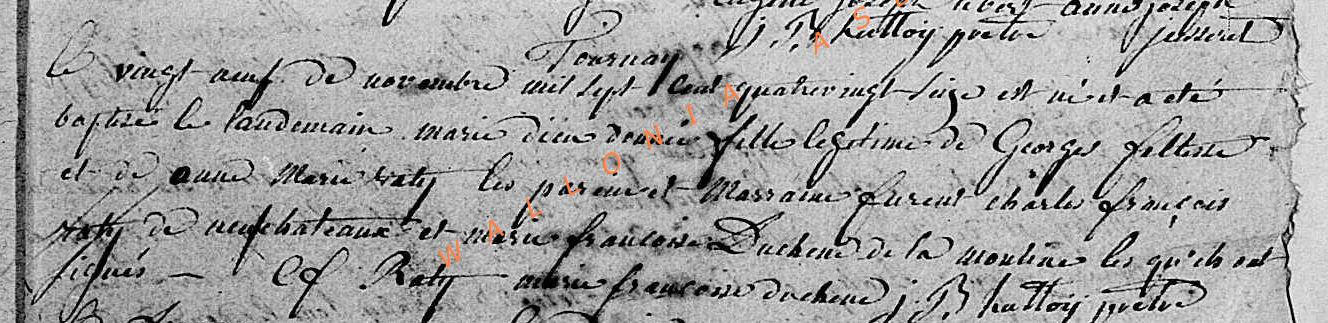 Eugene joseph anne joseph
j. B. huttoy pretre
Tournay
le vingt neuf de novembre mil sept cent quatrevingt seize est né et a eté
baptisé le landemain marie dieu donnée fille legitime de Georges
et de anne Marie Raty les parein et Marraine furent charles françois
Raty de neufchateaux et marie françoise Duchene de la mouline les qu'els ont
signés — Cf Raty marie françoise duchene j. B huttoy pretre
WALLONIA AS